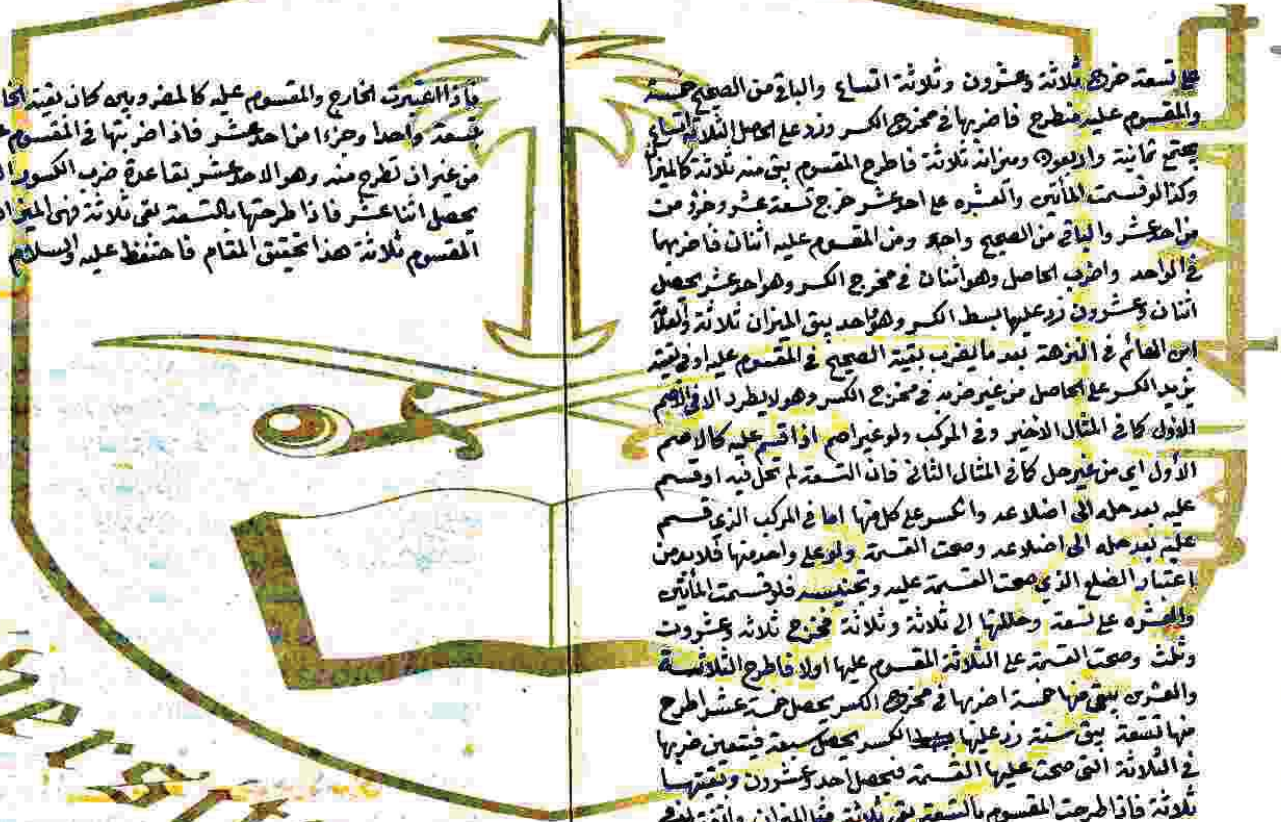 على تسعة خرج ثلاثة وعشرون وثلاثة اتساع والباقي من الصحيح خمسة
والمقسوم عليه منطرح فاضربها في مخرج الكسر وزد على الحاصل الثلاثة اتساع
يجتمع ثمانية واربعون وميزانه ثلاثة فاطرح المقسوم يبقى منه ثلاثة كالميزان
وكذا لو قسمت المأتين والعشره على احد عشر خرج تسعة عشر وجزؤ من
من احد عشر والباقي من الصحيح واحد ومن المقسوم عليه اثنان فاضربها
في الواحد واضرب الحاصل وهو اثنان في مخرج الكسر وهو احد عشر يحصل
اثنان وعشرون زد عليها بسط الكسر وهو واحد يبقى الميزان ثلاثة
ابن الهائم في النزهة بعد ما يضرب بقية الصحيح في المقسوم عليه او في بقيته
يزيد الكسر على الحاصل من غير ضربه في مخرج الكسر وهو لا يطرد الا في
الاول كما في المثال الاخير وفي المركب ولو غير اصم اذا قسم عليه كالاصم
الاول اي من غير حل كما في المثال الثاني فان التسعة لم تحل فيه او قسم
عليه بعد حله الى اضلاعه وانكسر على كل منها اما في المركب الذي قسم
عليه بعد حله الى اضلاعه وصحت القسمة ولو على واحد منها فلا بد من
اعتبار الضلع الذي صحت القسمة عليه وتجنيسه فلو قسمت المأتين
والعشره على تسعة وحللتها الى ثلاثة وثلاثة فخرج ثلاثه وعشروت
وثلث وصحت القسمة على الثلاثة المقسوم عليها اولا فاطرح الثلاثة
والعشرين يبقى منها خمسة اضربها في مخرج الكسر يحصل خمسة عشر اطرح
منها تسعة يبقى ستة زد عليها بسط الكسر يحصل سبعة فيتعين ضربها
في الثلاثة التي صحت عليها القسمة فيحصل احد وعشرون وبقيتها
ثلاثة فاذا طرحت المقسوم بالتسعة بقي ثلاثة مثل الميزان
فاذا اعتبرت الخارج والمقسوم عليه كالمضروبين كان بقية
تسعة واحدا وجزءا من احد عشر فاذا ضربتها في المقسوم
من غير ان تطرح منه وهو الاحد عشر بقاعدة ضرب الكسور
يحصل اثنا عشر فاذا طرحتها بالتسعة بقي ثلاثة فهي الميزان
المقسوم ثلاثة هذا تحقيق المقام فاحتفظ عليه والسلام